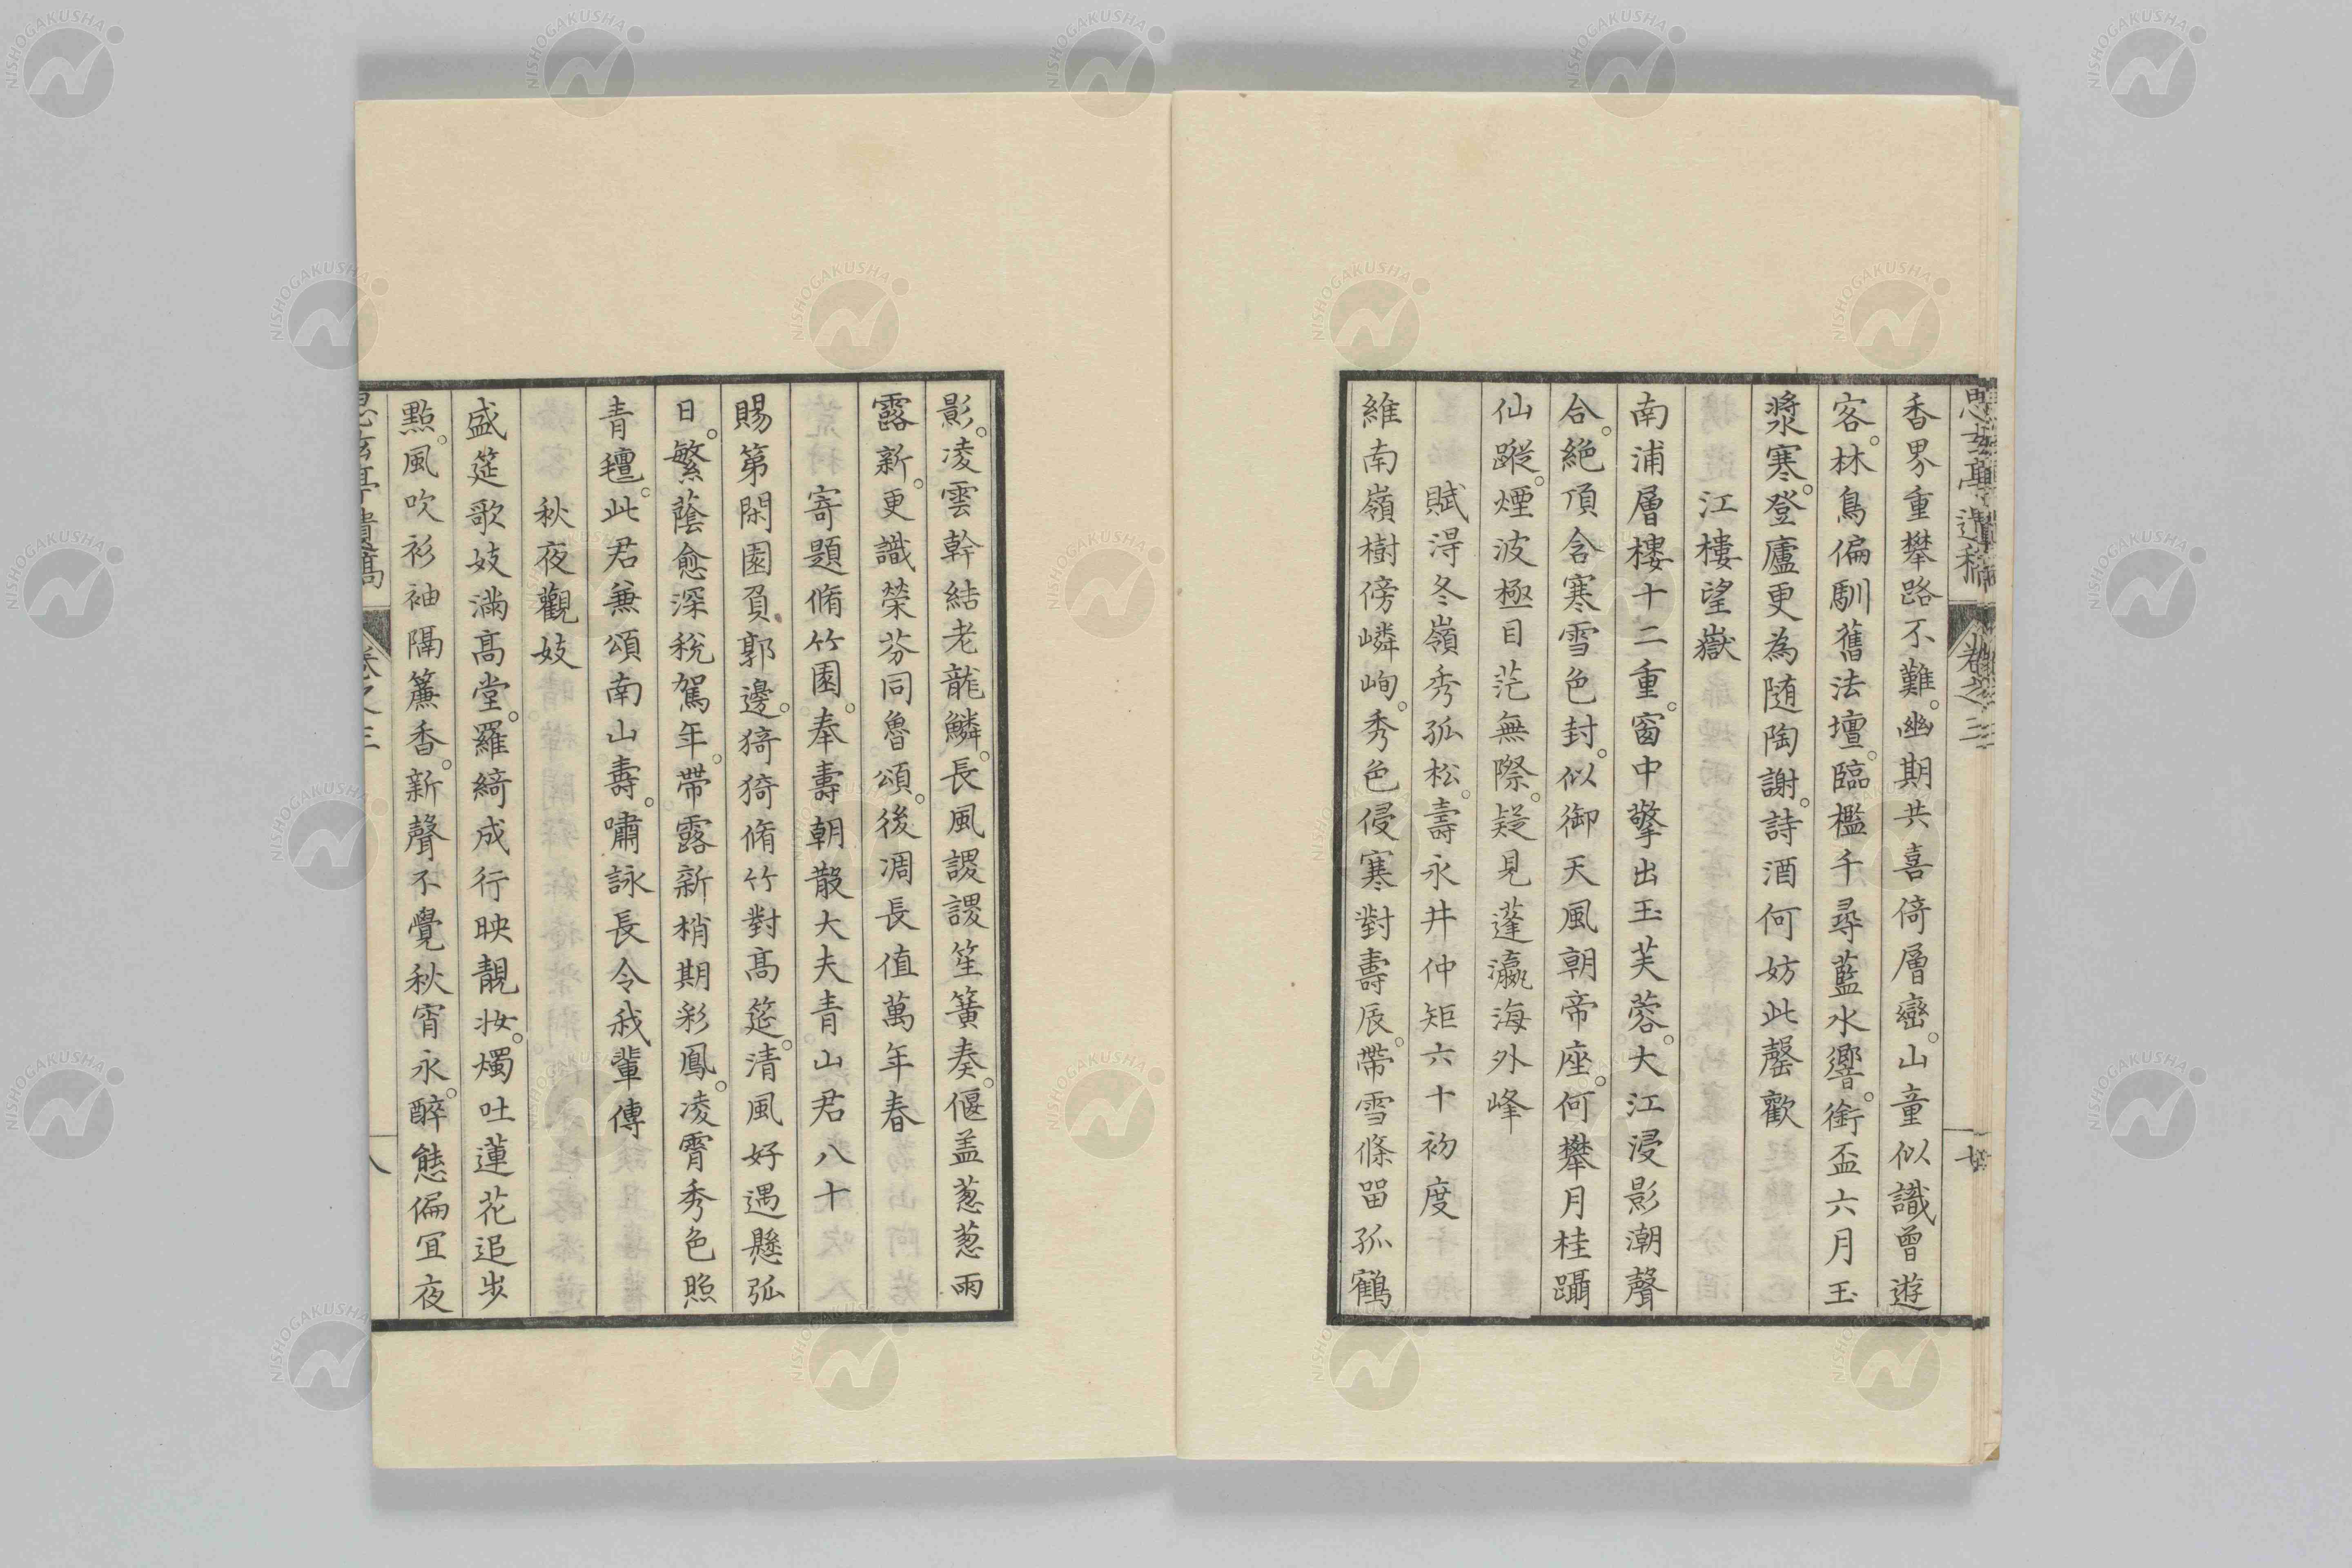 香界重攀路不難。幽期共喜倚層巒。山童似識曾遊
客。林鳥偏馴舊法壇。臨檻千尋藍水響。銜盃六月玉
漿寒。登廬更為随陶謝。詩酒何妨此罄歡
江樓望嶽
南浦層樓十二重。窗中擎出玉芙蓉。大江浸影潮聲
合。絶頂含寒雪色封。似御天風朝帝座。何攀月桂躡
仙蹤。煙波極目茫無際。疑見蓬瀛海外峰
賦淂冬嶺秀孤松。壽永井仲矩六十初度
維南嶺樹傍嶙峋。秀色侵寒對壽辰。帶雪條留孤鶴
影。凌雲幹結老龍鱗。長風謖謖笙簧奏。偃盖葱葱雨
露新。更識榮芬同魯頌。後凋長值萬年春
寄題脩竹園。奉壽朝散大夫青山君八十
賜第閑園負郭邊。猗猗脩竹對高筵。清風好遇懸弧
日。繁蔭愈深稅駕年。帶露新梢期彩鳳。凌霄秀色照
青氊。此君兼頌南山壽。嘯詠長令我輩傳
秋夜觀妓
盛筵歌妓滿高堂。羅綺成行映靚妝。燭吐蓮花追步
點。風吹衫袖隔簾香。新聲不覺秋宵永。醉態偏宜夜
思玄亭遺稿 卷之三 八
NISHOGAKUSHA